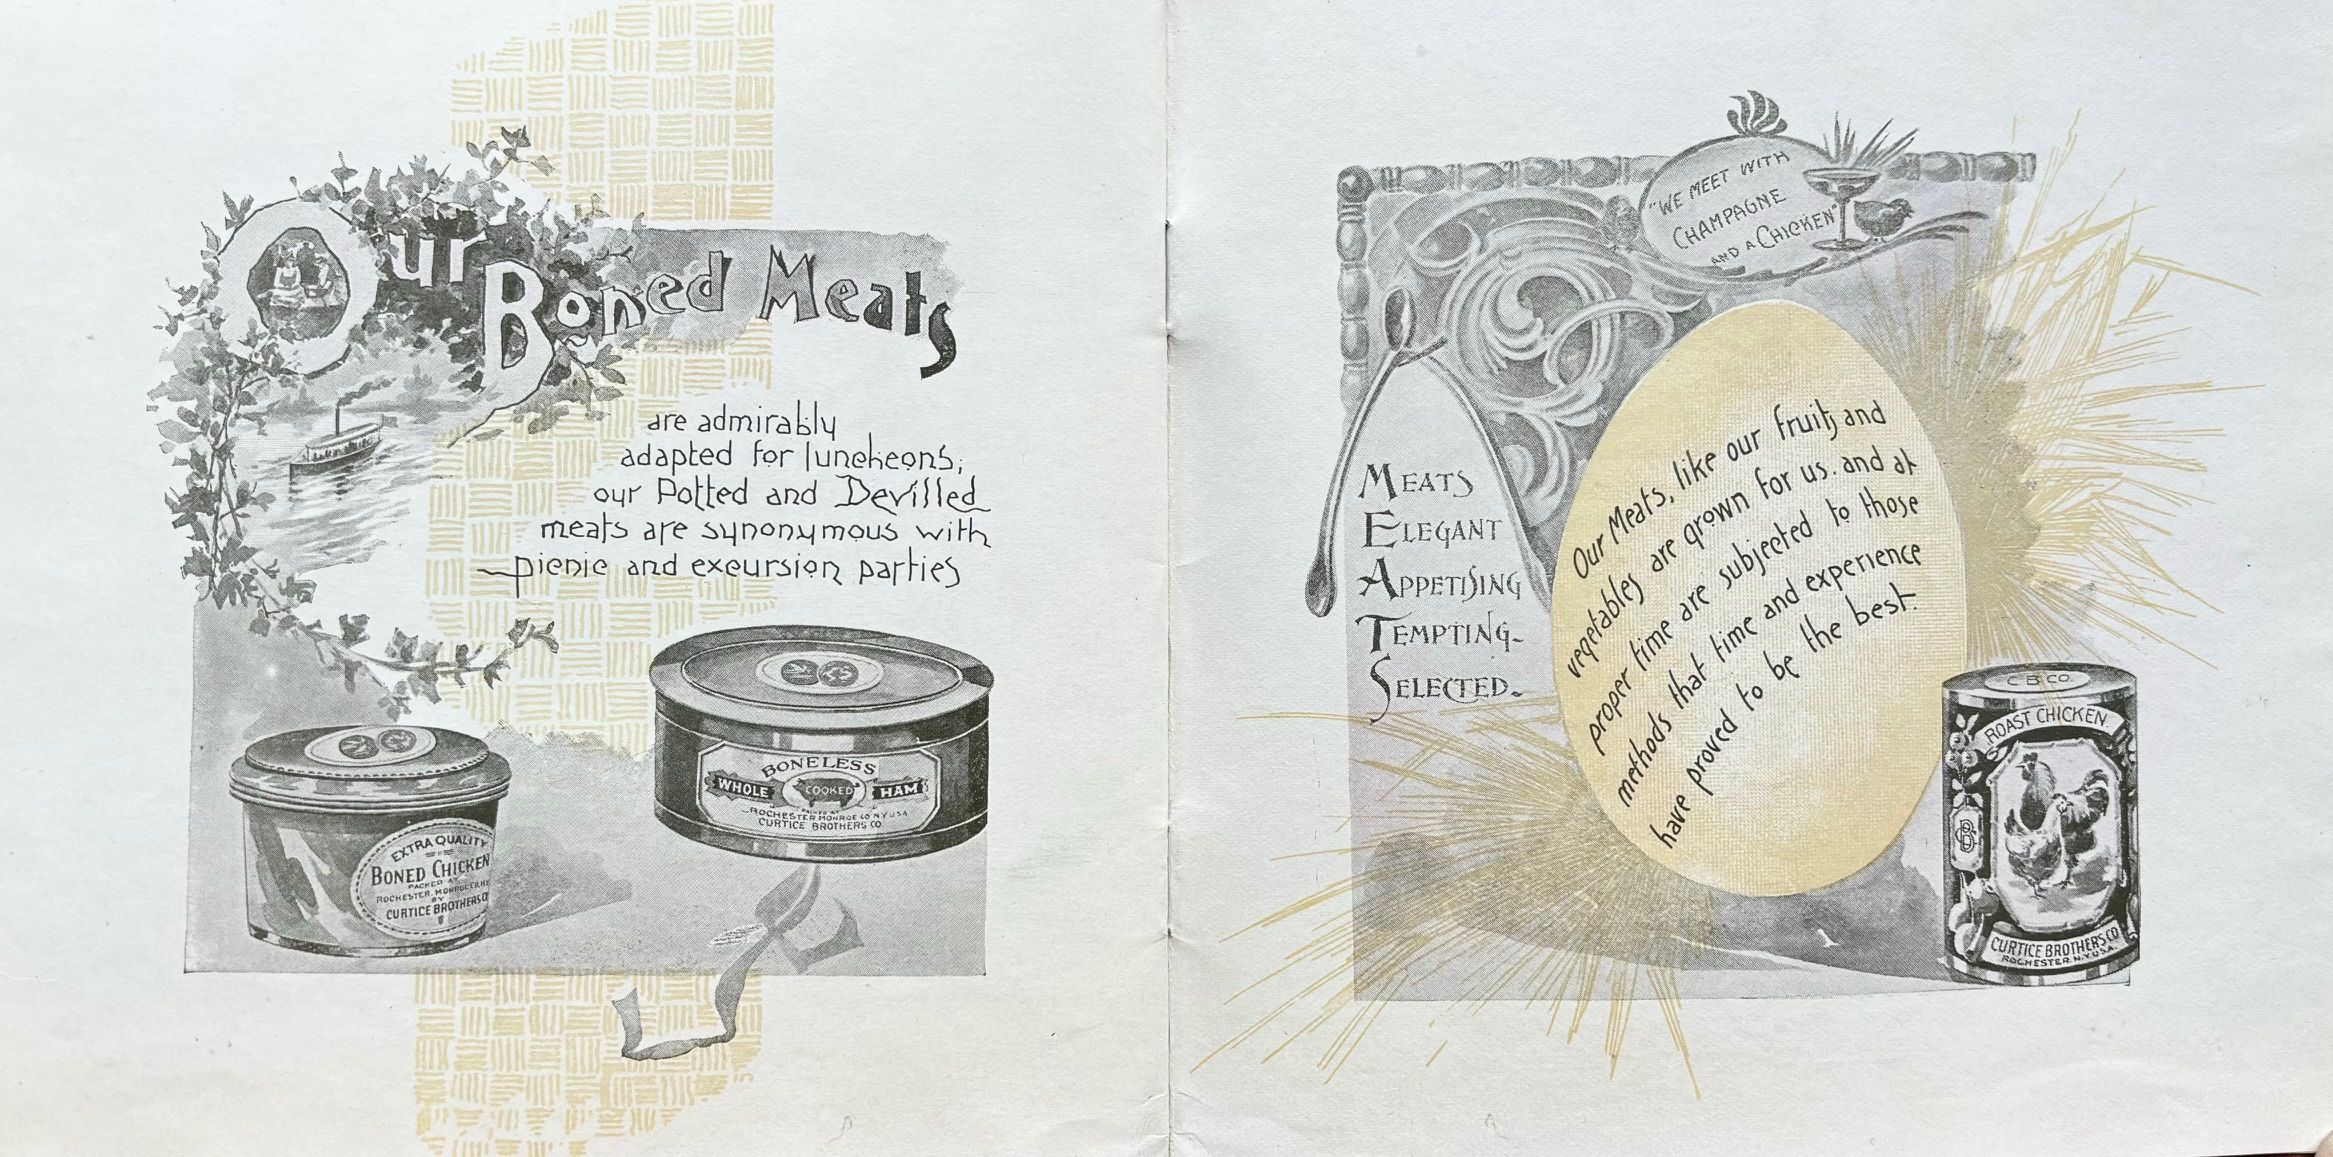 Our Boned Meats
are admirably
adapted for luncheons;
our Potted and Devilled
meats are synonymous with
picnic and excursion parties
EXTRA QUALITY
BONED CHICKEN
PACKED AT
ROCHESTER, MONROE CO. N.Y.
BY
CURTICE BROTHERS CO
BONELESS
WHOLE COOKED HAM
PACKED AT
ROCHESTER MONROE CO NY USA
CURTICE BROTHERS CO.
"WE MEET WITH
CHAMPAGNE
AND A CHICKEN"
MEATS
ELEGANT
APPETISING
TEMPTING-
SELECTED-
Our Meats, like our fruits and
vegetables are grown for us. and at
proper time are subjected to those
methods that time and experience
have proved to be the best.
C B CO.
ROAST CHICKEN
CB
CURTICE BROTHERS CO
ROCHESTER. N.Y. USA.